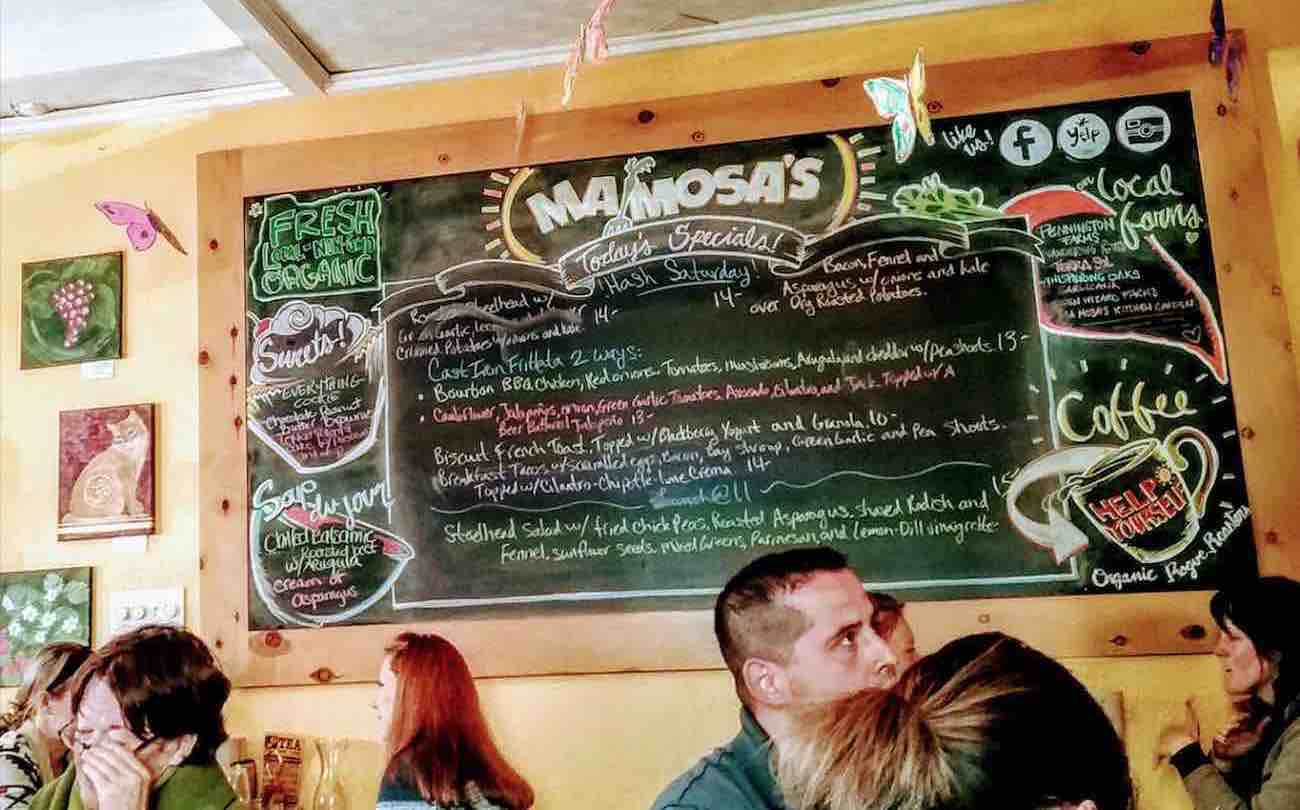 like us!
f
yelp
MA MOSA'S
Today's Specials!
FRESH
LOCAL-NON-GMO
ORGANIC
Sweets!
EVERYTHING
COOKIE
Chocolate Peanut
Butter
Hash Saturday!
Steelhead w/
Green Garlic,
Creamed Potatoes w/onions and kale. 14-
14- Bacon, Fennel and
Asparagus w/onions and kale
over Dry Roasted Potatoes.
Cast Iron Frittata 2 ways:
• Bourbon BBQ Chicken, Red onions, Tomatoes, mushrooms, Arugula and cheddar w/pea shoots. 13-
• Cauliflower, Jalapeños, onion, Green Garlic Tomatoes, Avocado, Cilantro, and Jack. Topped w/ A
Beer Battered Jalapeño 13-
Biscuit French Toast, Topped w/ Blackberry Yogurt and Granola. 10-
Breakfast Tacos w/scrambled eggs, Bacon, Bay shrimp, Green Garlic and Pea Shoots.
Topped w/Cilantro-Chipotle-Lime Crema. 14-
Lunch @ 11
Steelhead Salad w/ fried chick Peas, Roasted Asparagus, shaved Radish and
Fennel, sunflower seeds, mixed Greens, Parmesan, and lemon-Dill vinaigrette
15
Soup du jour!
Chilled Balsamic
Roasted beet
w/Arugula
Cream of
Asparagus
Local
farms
PENNINGTON
FARMS
WHISTLING OAKS
MA MOSA'S KITCHEN GARDEN
Coffee
HELP
YOURSELF
Organic Rogue Roasters
TEA